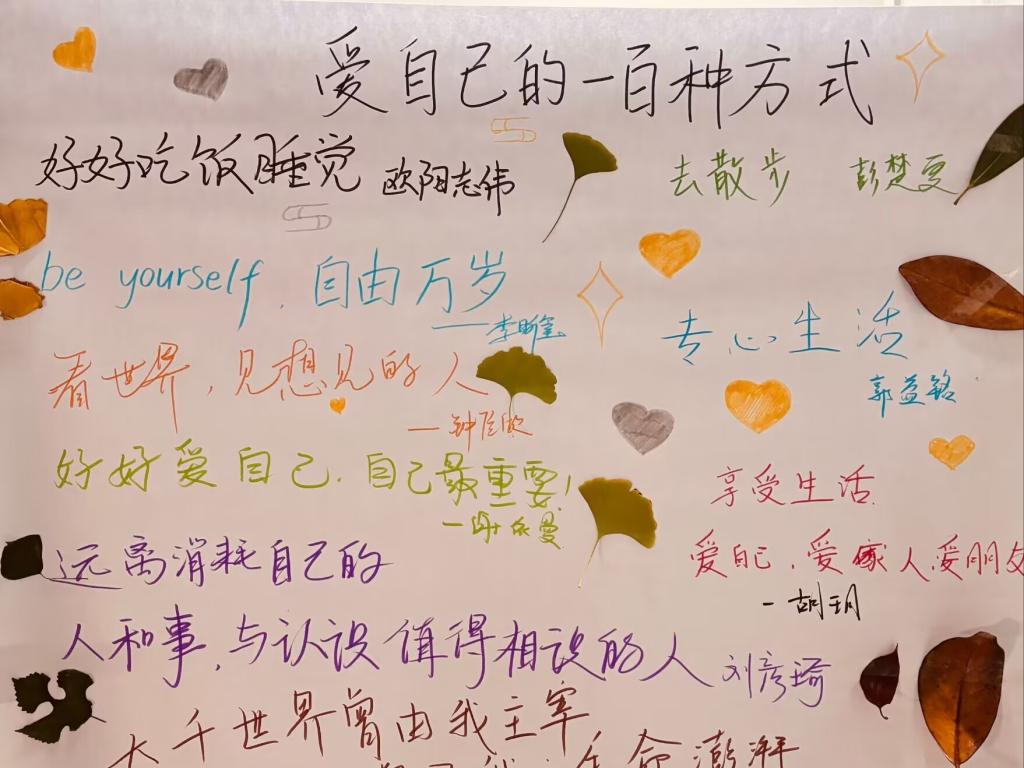 爱自己的一百种方式
好好吃饭睡觉 欧阳志伟
去散步 彭楚夏
be yourself，自由万岁
——李昕
专心生活
郭益铭
看世界，见想见的人
—钟
好好爱自己，自己最重要！
—谢依曼
享受生活
爱自己，爱家人爱朋友
-胡玥
远离消耗自己的
人和事，与认识值得相识的人 刘彦琦
大千世界曾由我主宰
生命澎湃